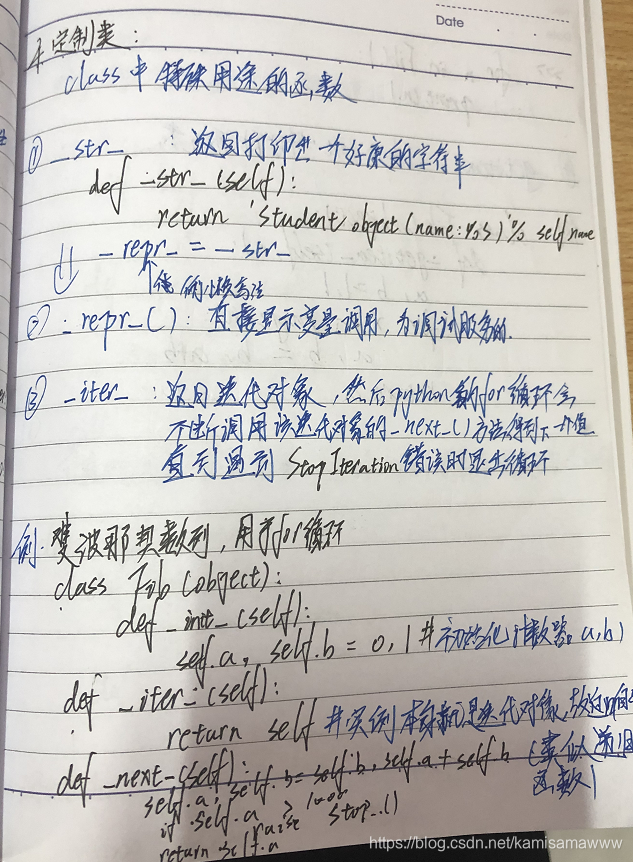 Date
定制类：
class中特殊用途的函数
① _str_ ：返回打印出一个好康的字符串
def _str_(self):
return 'Student object (name:%s)'% self.name
_repr_ = _str_
偷懒写法
② _repr_()：直接显示变量调用，为调试服务的.
③ _iter_ ：返回迭代对象，然后python的for循环会
不断调用该迭代对象的_next_()方法得到下一个值
直到遇到StopIteration错误时退出循环
例. 斐波那契数列，用于for循环
class Fib(object):
def _init_(self):
self.a, self.b = 0,1 #初始化计数器a,b)
def _iter_(self):
return self #实例本身就是迭代对象,故返回自
def _next_(self):
self.a, self.b = self.b, self.a + self.b (类似递归
函数)
if self.a >
raise Stop..()
return self.a
https://blog.csdn.net/kamisamawww